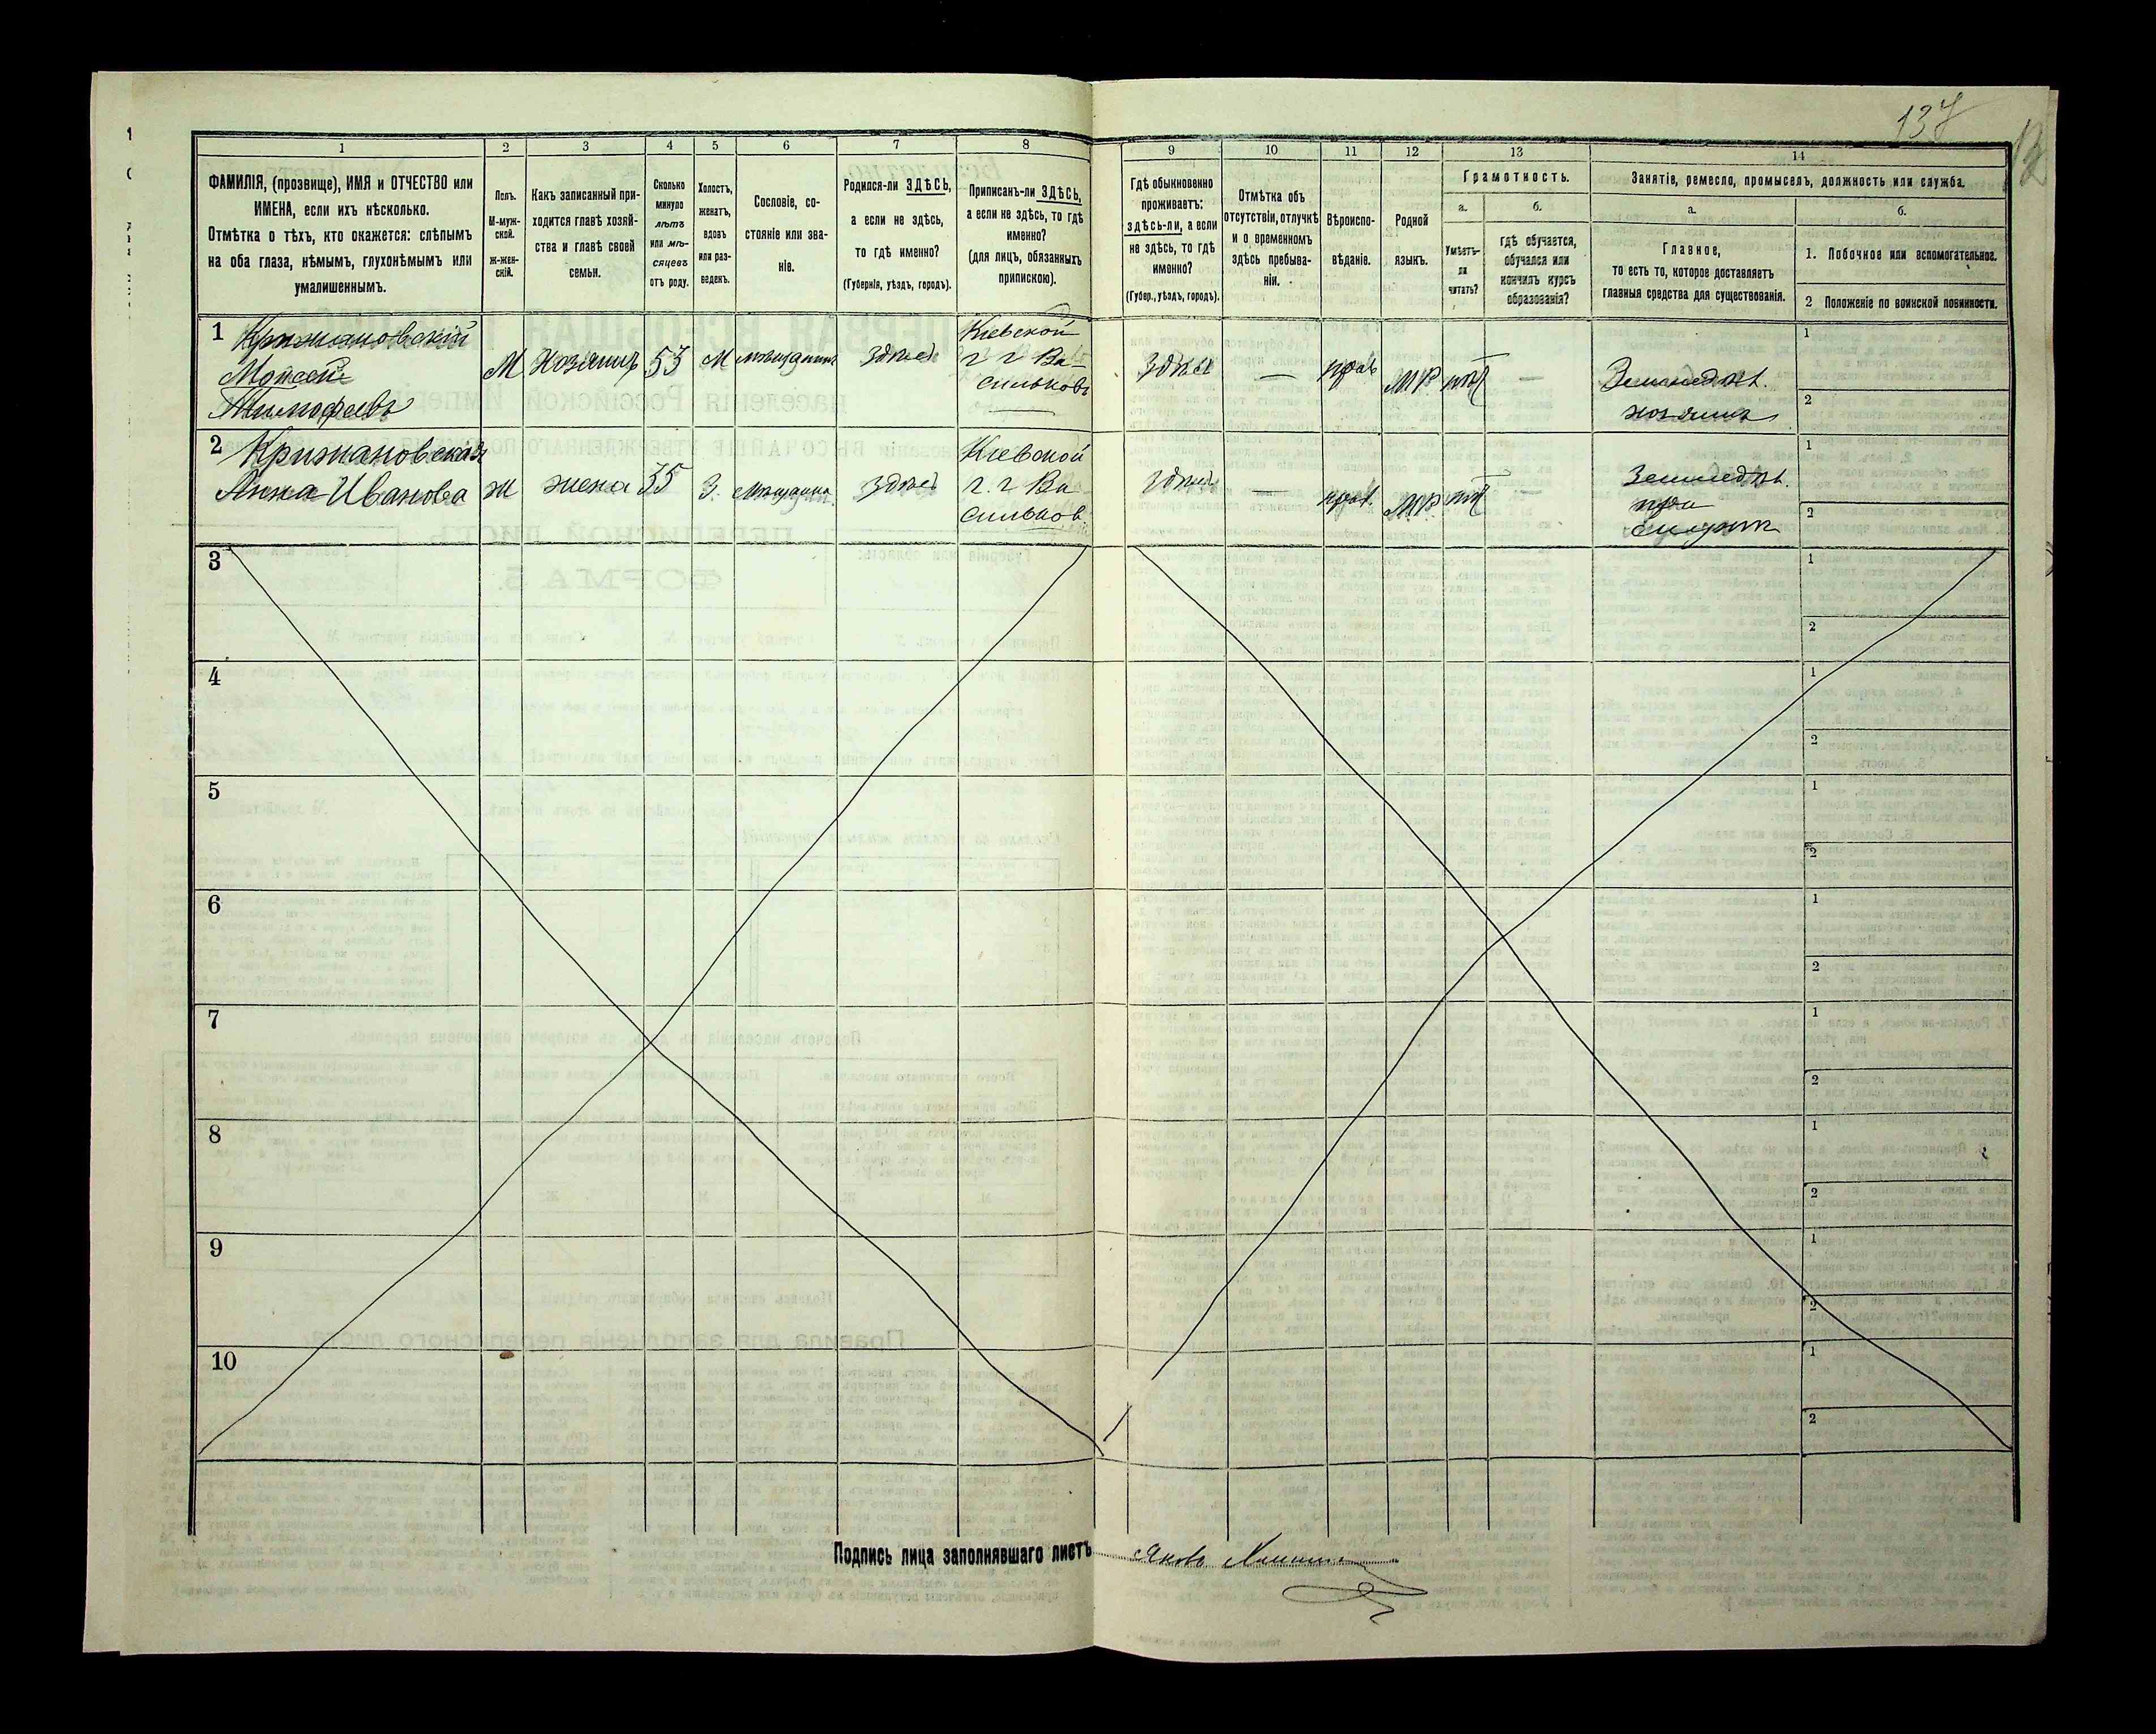 137
1 2 3 4 5 6 7 8 9 10 11 12 13 14
ФАМИЛІЯ, (прозвище), ИМЯ и ОТЧЕСТВО или
ИМЕНА, если ихъ нѣсколько.
Отмѣтка о тѣхъ, кто окажется: слѣпымъ
на оба глаза, нѣмымъ, глухонѣмымъ или
умалишеннымъ.
Полъ.
М-муж-
ской.
ж-жен-
скій.
Какъ записанный при-
ходится главѣ хозяй-
ства и главѣ своей
семьи.
Сколько
минуло
лѣтъ
или мѣ-
сяцевъ
отъ роду.
Холостъ,
женатъ,
вдовъ
или раз-
веденъ.
Сословіе, со-
стояніе или зва-
ніе.
Родился-ли ЗДѢСЬ,
а если не здѣсь,
то гдѣ именно?
(Губернія, уѣздъ, городъ).
Приписанъ-ли ЗДѢСЬ,
а если не здѣсь, то гдѣ
именно?
(для лицъ, обязанныхъ
припискою).
Гдѣ обыкновенно
проживаетъ:
здѣсь-ли, а если
не здѣсь, то гдѣ
именно?
(Губер., уѣздъ, городъ).
Отмѣтка объ
отсутствіи, отлучкѣ
и о временномъ
здѣсь пребыва-
ніи.
Вѣроиспо-
вѣданіе.
Родной
языкъ.
Грамотность.
а.
Умѣетъ-
ли
читать?
б.
гдѣ обучается,
обучался или
кончилъ курсъ
образованія?
Занятіе, ремесло, промыселъ, должность или служба.
а.
Главное,
то есть то, которое доставляетъ
главныя средства для существованія.
б.
1. Побочное или вспомогательное.
2 Положеніе по воинской повинности.
1 Крижановскій
Мойсей
Тимофеевъ
М Хозяинъ 53 М мѣщанинъ здѣсь
Кіевской
г. г Ва-
сильковъ
здѣсь — прав М.Р. нѣт —
Земледѣл.
хозяинъ
1
2
2 Крижановская
Анна Иванова
Ж жена 55 З. мѣщанка здѣсь
Кіевской
г. г Ва-
сильков.
здѣсь — прав. М.Р. нѣт —
Земледѣл.
при
1
2
3 1
2
4 1
2
5 1
2
6 1
2
7 1
2
8 1
2
9 1
2
10 1
2
Подпись лица заполнявшаго листъ Яковъ